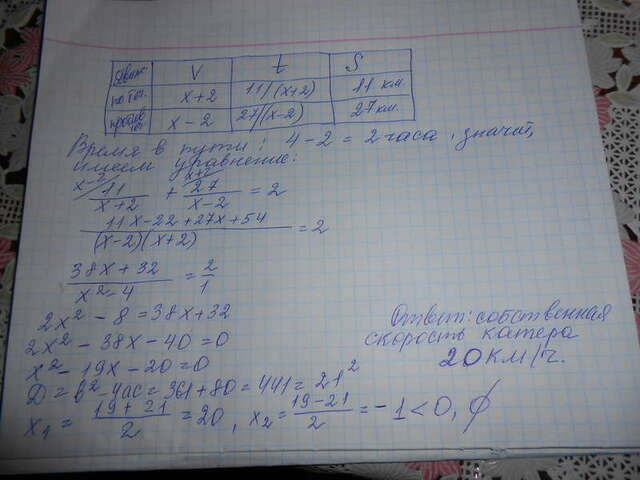 Движ. V t S
по теч. x+2 11/(x+2) 11 км.
против теч x-2 27/(x-2) 27 км.
Время в пути: 4-2=2 часа, значит,
имеем уравнение:
x-2/ 11/(x+2) + x+2/ 27/(x-2) = 2
(11x-22+27x+54)/((x-2)(x+2)) = 2
(38x+32)/(x²-4) = 2/1
2x²-8=38x+32
2x²-38x-40=0
x²-19x-20=0
D=b²-4ac=361+80=441=21²
x₁=(19+21)/2=20, x₂=(19-21)/2=-1<0, ∅
Ответ: собственная
скорость катера
20 км/ч.